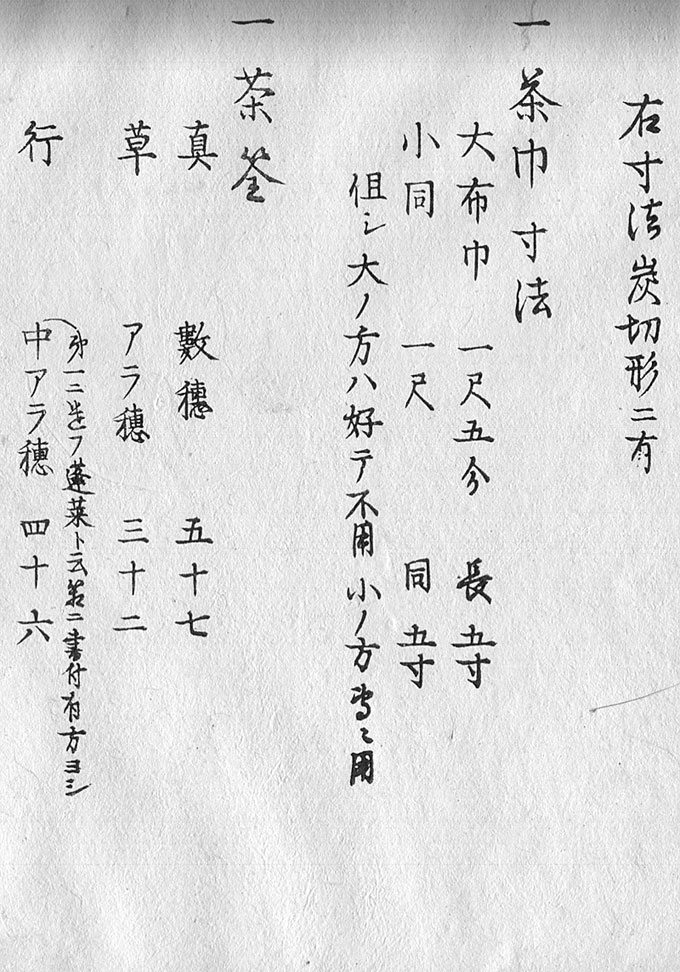 右寸法炭切形ニ有
一 茶巾寸法
大布巾 一尺五分 長五寸
小同 一尺 同五寸
但シ大ノ方ハ好テ不用 小ノ方専ニ用
一 茶筌
真 數穗 五十七
草 アラ穗 三十二
第一ニ造フ蓬莱ト云 ニ書付有方ヨシ
行 中アラ穗 四十六